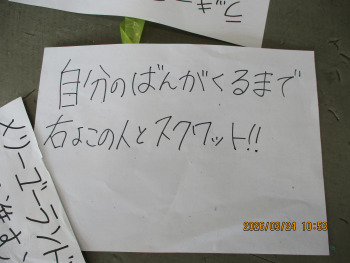 ラッキ
自分のばんがくるまで
右よこの人とスクワット!!
メリーゴーランド
2026/03/21 10:53